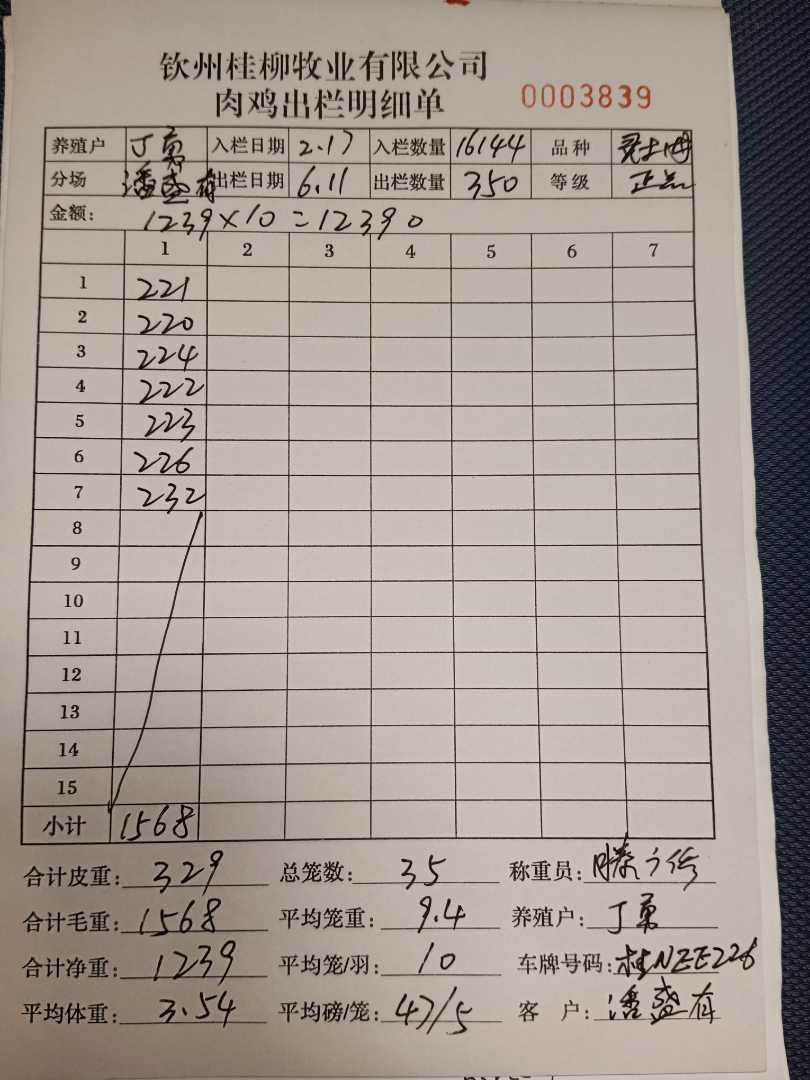 钦州桂柳牧业有限公司
肉鸡出栏明细单 0003839
养殖户 丁勇 入栏日期 2.17 入栏数量 16144 品种
分场 潘盛存 出栏日期 6.11 出栏数量 350 等级 正品
金额: 1239×10=12390
1 2 3 4 5 6 7
1 221
2 220
3 224
4 222
5 223
6 226
7 232
8
9
10
11
12
13
14
15
小计 1568
合计皮重: 329 总笼数: 35 称重员:
合计毛重: 1568 平均笼重: 9.4 养殖户: 丁勇
合计净重: 1239 平均笼/羽: 10 车牌号码: 桂NEE226
平均体重: 3.54 平均磅/笼: 47/5 客 户: 潘盛存